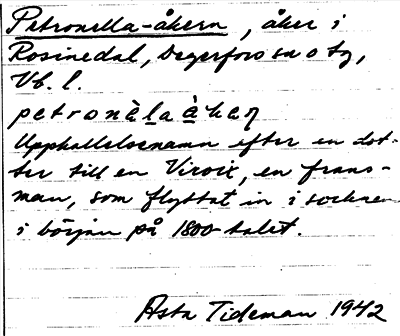 Petronella-åkern, åker i
Rosinedal, Degerfors sn o tg,
Vb. l.
petronèla àkeṇ
Uppkallelsenamn efter en dot-
ter till en Viroix, en frans-
man, som flyttat in i socknen
i början på 1800-talet.
Asta Tideman 1942